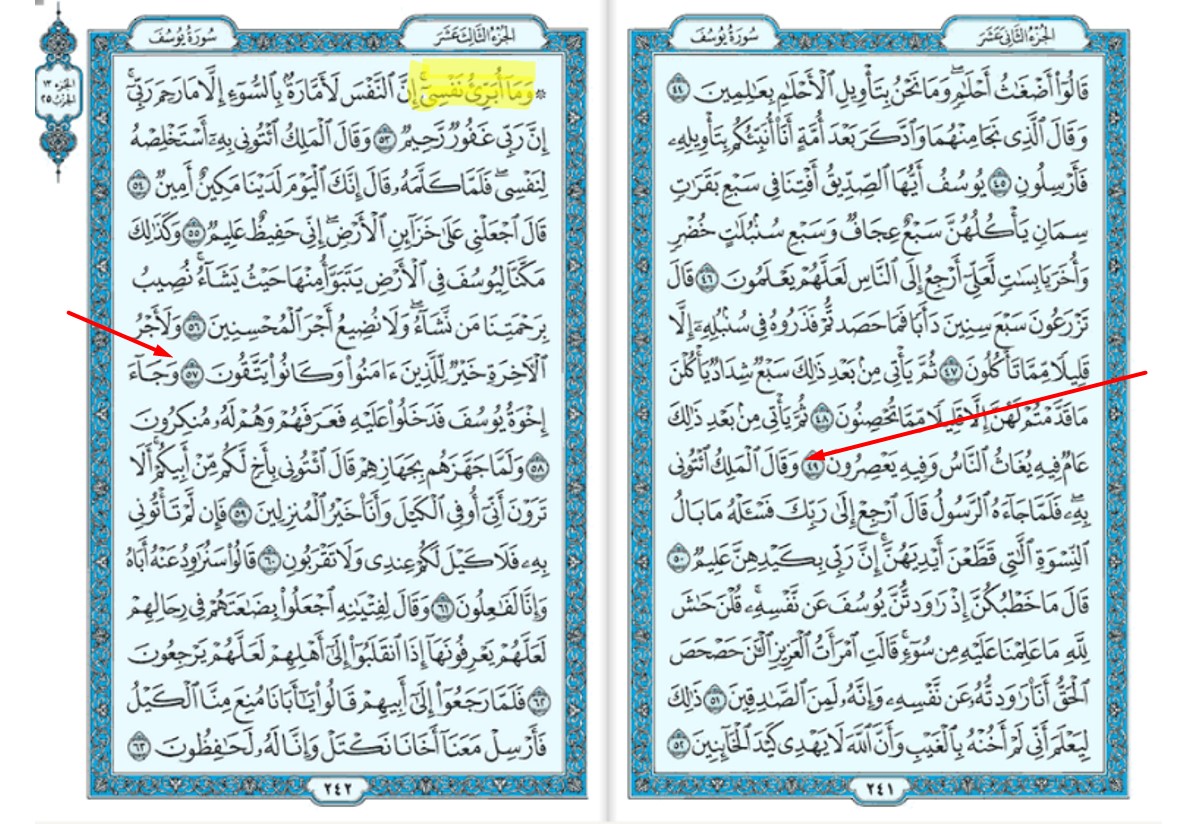 الجزء الثاني عشر
سورة يوسف
قَالُوٓا۟ أَضْغَٰثُ أَحْلَٰمٍ ۖ وَمَا نَحْنُ بِتَأْوِيلِ ٱلْأَحْلَٰمِ بِعَٰلِمِينَ ٤٤
وَقَالَ ٱلَّذِى نَجَا مِنْهُمَا وَٱدَّكَرَ بَعْدَ أُمَّةٍ أَنَا۠ أُنَبِّئُكُم بِتَأْوِيلِهِۦ
فَأَرْسِلُونِ ٤٥ يُوسُفُ أَيُّهَا ٱلصِّدِّيقُ أَفْتِنَا فِى سَبْعِ بَقَرَٰتٍ
سِمَانٍ يَأْكُلُهُنَّ سَبْعٌ عِجَافٌ وَسَبْعِ سُنۢبُلَٰتٍ خُضْرٍ
وَأُخَرَ يَابِسَٰتٍ لَّعَلِّىٓ أَرْجِعُ إِلَى ٱلنَّاسِ لَعَلَّهُمْ يَعْلَمُونَ ٤٦ قَالَ
تَزْرَعُونَ سَبْعَ سِنِينَ دَأَبًا فَمَا حَصَدتُّمْ فَذَرُوهُ فِى سُنۢبُلِهِۦٓ إِلَّا
قَلِيلًا مِّمَّا تَأْكُلُونَ ٤٧ ثُمَّ يَأْتِى مِنۢ بَعْدِ ذَٰلِكَ سَبْعٌ شِدَادٌ يَأْكُلْنَ
مَا قَدَّمْتُمْ لَهُنَّ إِلَّا قَلِيلًا مِّمَّا تُحْصِنُونَ ٤٨ ثُمَّ يَأْتِى مِنۢ بَعْدِ ذَٰلِكَ
عَامٌ فِيهِ يُغَاثُ ٱلنَّاسُ وَفِيهِ يَعْصِرُونَ ٤٩ وَقَالَ ٱلْمَلِكُ ٱئْتُونِى
بِهِۦ ۖ فَلَمَّا جَآءَهُ ٱلرَّسُولُ قَالَ ٱرْجِعْ إِلَىٰ رَبِّكَ فَسْـَٔلْهُ مَا بَالُ
ٱلنِّسْوَةِ ٱلَّٰتِى قَطَّعْنَ أَيْدِيَهُنَّ ۚ إِنَّ رَبِّى بِكَيْدِهِنَّ عَلِيمٌ ٥٠
قَالَ مَا خَطْبُكُنَّ إِذْ رَٰوَدتُّنَّ يُوسُفَ عَن نَّفْسِهِۦ ۚ قُلْنَ حَٰشَ
لِلَّهِ مَا عَلِمْنَا عَلَيْهِ مِن سُوٓءٍ ۚ قَالَتِ ٱمْرَأَتُ ٱلْعَزِيزِ ٱلْـَٰٔنَ حَصْحَصَ
ٱلْحَقُّ أَنَا۠ رَٰوَدتُّهُۥ عَن نَّفْسِهِۦ وَإِنَّهُۥ لَمِنَ ٱلصَّٰدِقِينَ ٥١ ذَٰلِكَ
لِيَعْلَمَ أَنِّى لَمْ أَخُنْهُ بِٱلْغَيْبِ وَأَنَّ ٱللَّهَ لَا يَهْدِى كَيْدَ ٱلْخَآئِنِينَ ٥٢
٢٤١
الجزء الثالث عشر
سورة يوسف
۞ وَمَآ أُبَرِّئُ نَفْسِىٓ ۚ إِنَّ ٱلنَّفْسَ لَأَمَّارَةٌۢ بِٱلسُّوٓءِ إِلَّا مَا رَحِمَ رَبِّىٓ ۚ
إِنَّ رَبِّى غَفُورٌ رَّحِيمٌ ٥٣ وَقَالَ ٱلْمَلِكُ ٱئْتُونِى بِهِۦٓ أَسْتَخْلِصْهُ
لِنَفْسِى ۖ فَلَمَّا كَلَّمَهُۥ قَالَ إِنَّكَ ٱلْيَوْمَ لَدَيْنَا مَكِينٌ أَمِينٌ ٥٤
قَالَ ٱجْعَلْنِى عَلَىٰ خَزَآئِنِ ٱلْأَرْضِ ۖ إِنِّى حَفِيظٌ عَلِيمٌ ٥٥ وَكَذَٰلِكَ
مَكَّنَّا لِيُوسُفَ فِى ٱلْأَرْضِ يَتَبَوَّأُ مِنْهَا حَيْثُ يَشَآءُ ۚ نُصِيبُ
بِرَحْمَتِنَا مَن نَّشَآءُ ۖ وَلَا نُضِيعُ أَجْرَ ٱلْمُحْسِنِينَ ٥٦ وَلَأَجْرُ
ٱلْـَٔاخِرَةِ خَيْرٌ لِّلَّذِينَ ءَامَنُوا۟ وَكَانُوا۟ يَتَّقُونَ ٥٧ وَجَآءَ
إِخْوَةُ يُوسُفَ فَدَخَلُوا۟ عَلَيْهِ فَعَرَفَهُمْ وَهُمْ لَهُۥ مُنكِرُونَ
٥٨ وَلَمَّا جَهَّزَهُم بِجَهَازِهِمْ قَالَ ٱئْتُونِى بِأَخٍ لَّكُم مِّنْ أَبِيكُمْ ۚ أَلَا
تَرَوْنَ أَنِّىٓ أُوفِى ٱلْكَيْلَ وَأَنَا۠ خَيْرُ ٱلْمُنزِلِينَ ٥٩ فَإِن لَّمْ تَأْتُونِى
بِهِۦ فَلَا كَيْلَ لَكُمْ عِندِى وَلَا تَقْرَبُونِ ٦٠ قَالُوا۟ سَنُرَٰوِدُ عَنْهُ أَبَاهُ
وَإِنَّا لَفَٰعِلُونَ ٦١ وَقَالَ لِفِتْيَٰنِهِ ٱجْعَلُوا۟ بِضَٰعَتَهُمْ فِى رِحَالِهِمْ
لَعَلَّهُمْ يَعْرِفُونَهَآ إِذَا ٱنقَلَبُوٓا۟ إِلَىٰٓ أَهْلِهِمْ لَعَلَّهُمْ يَرْجِعُونَ
٦٢ فَلَمَّا رَجَعُوٓا۟ إِلَىٰٓ أَبِيهِمْ قَالُوا۟ يَٰٓأَبَانَا مُنِعَ مِنَّا ٱلْكَيْلُ
فَأَرْسِلْ مَعَنَآ أَخَانَا نَكْتَلْ وَإِنَّا لَهُۥ لَحَٰفِظُونَ ٦٣
٢٤٢
الجزء ١٣
الحزب ٢٥